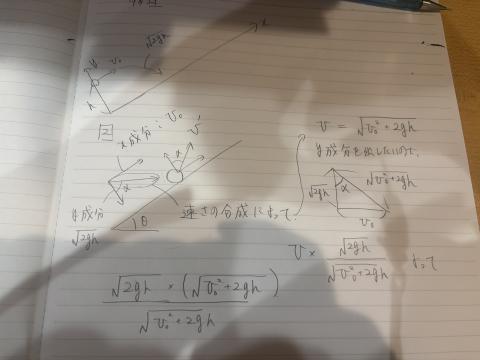 物理
x
y
v₀
√2gh
h
図
x成分:v₀
v'
α
α
y成分
√2gh
θ
速さの合成によって、
v = √v₀²+2gh
y成分を出したいので、
√2gh
α
√v₀²+2gh
v₀
v × √2gh / √v₀²+2gh よって
√2gh × (√v₀²+2gh) / √v₀²+2gh